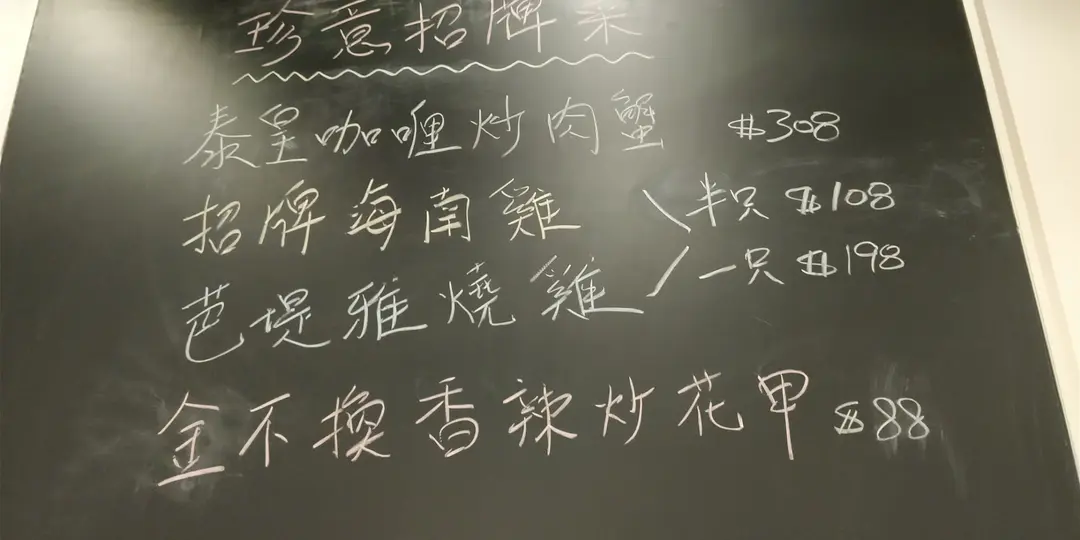 珍意招牌菜
泰皇咖喱炒肉蟹 $308
招牌海南雞 半只 $108
芭堤雅燒雞 一只 $198
金不換香辣炒花甲 $88